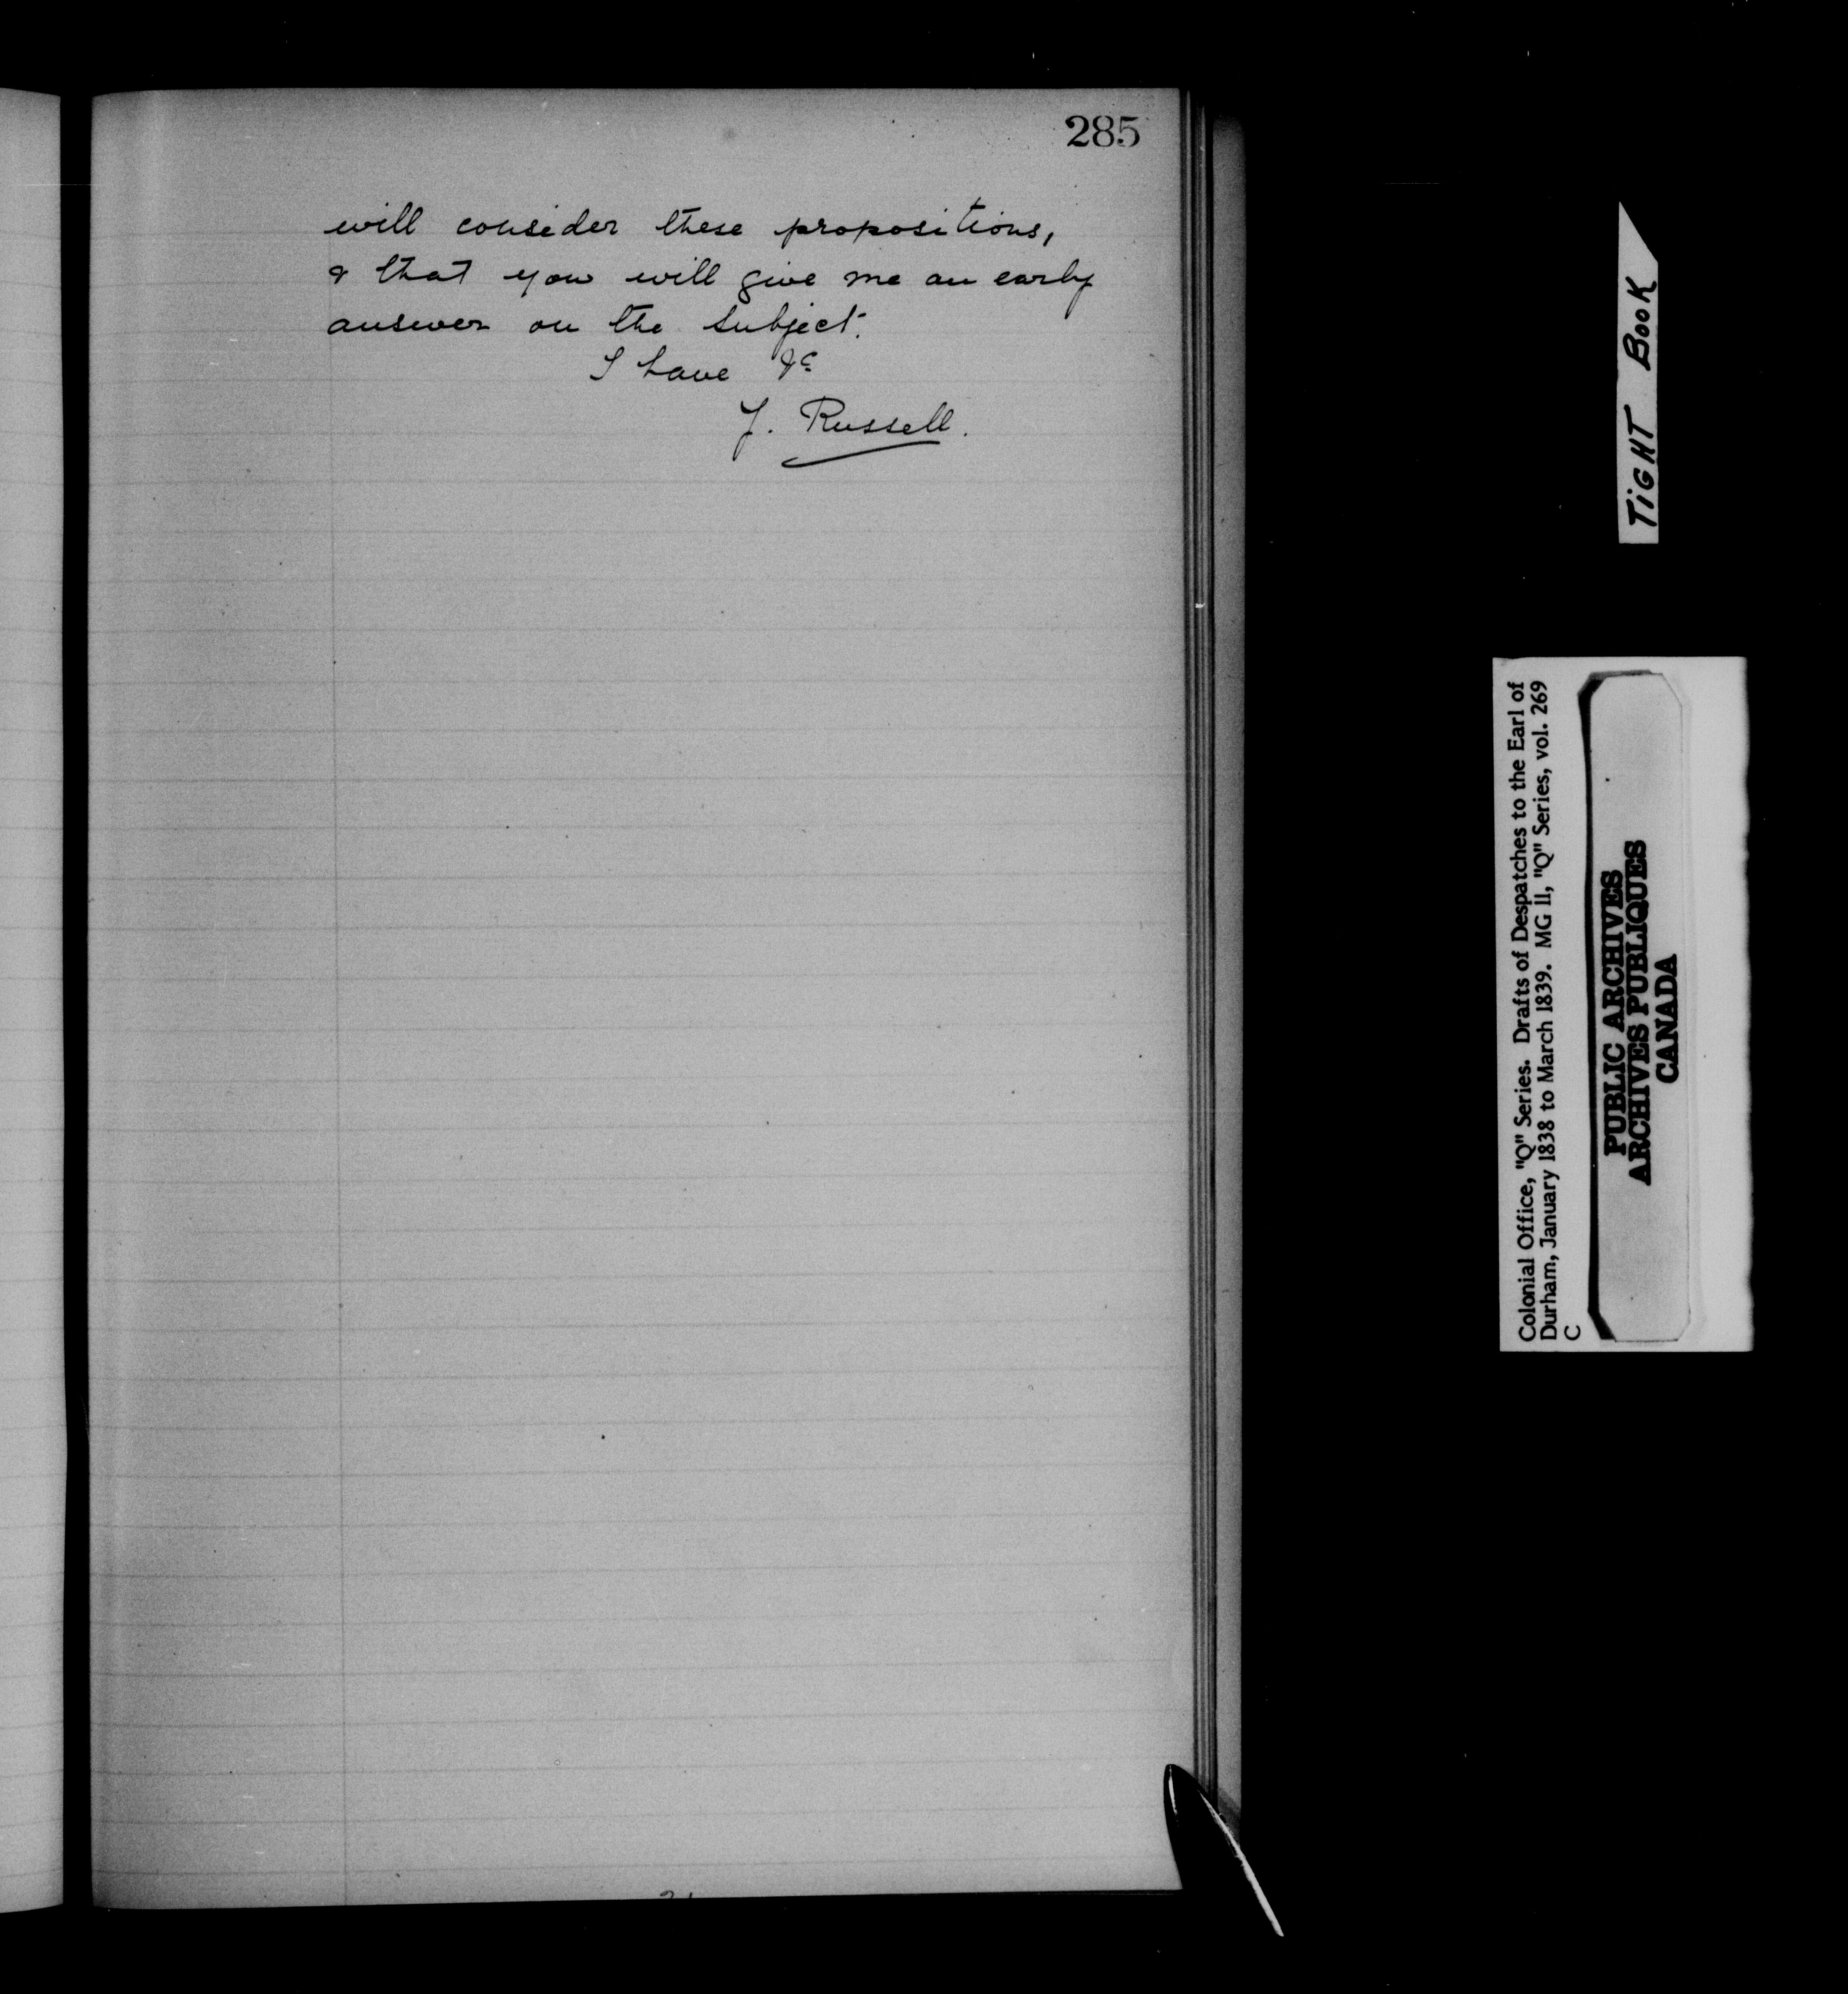 285
will consider these propositions,
& that you will give me an early
answer on the subject.
I have &c
J. Russell.
TiGHT BooK
Colonial Office, "Q" Series. Drafts of Despatches to the Earl of
Durham, January 1838 to March 1839. MG 11, "Q" Series, vol. 269
C
PUBLIC ARCHIVES
ARCHIVES PUBLIQUES
CANADA